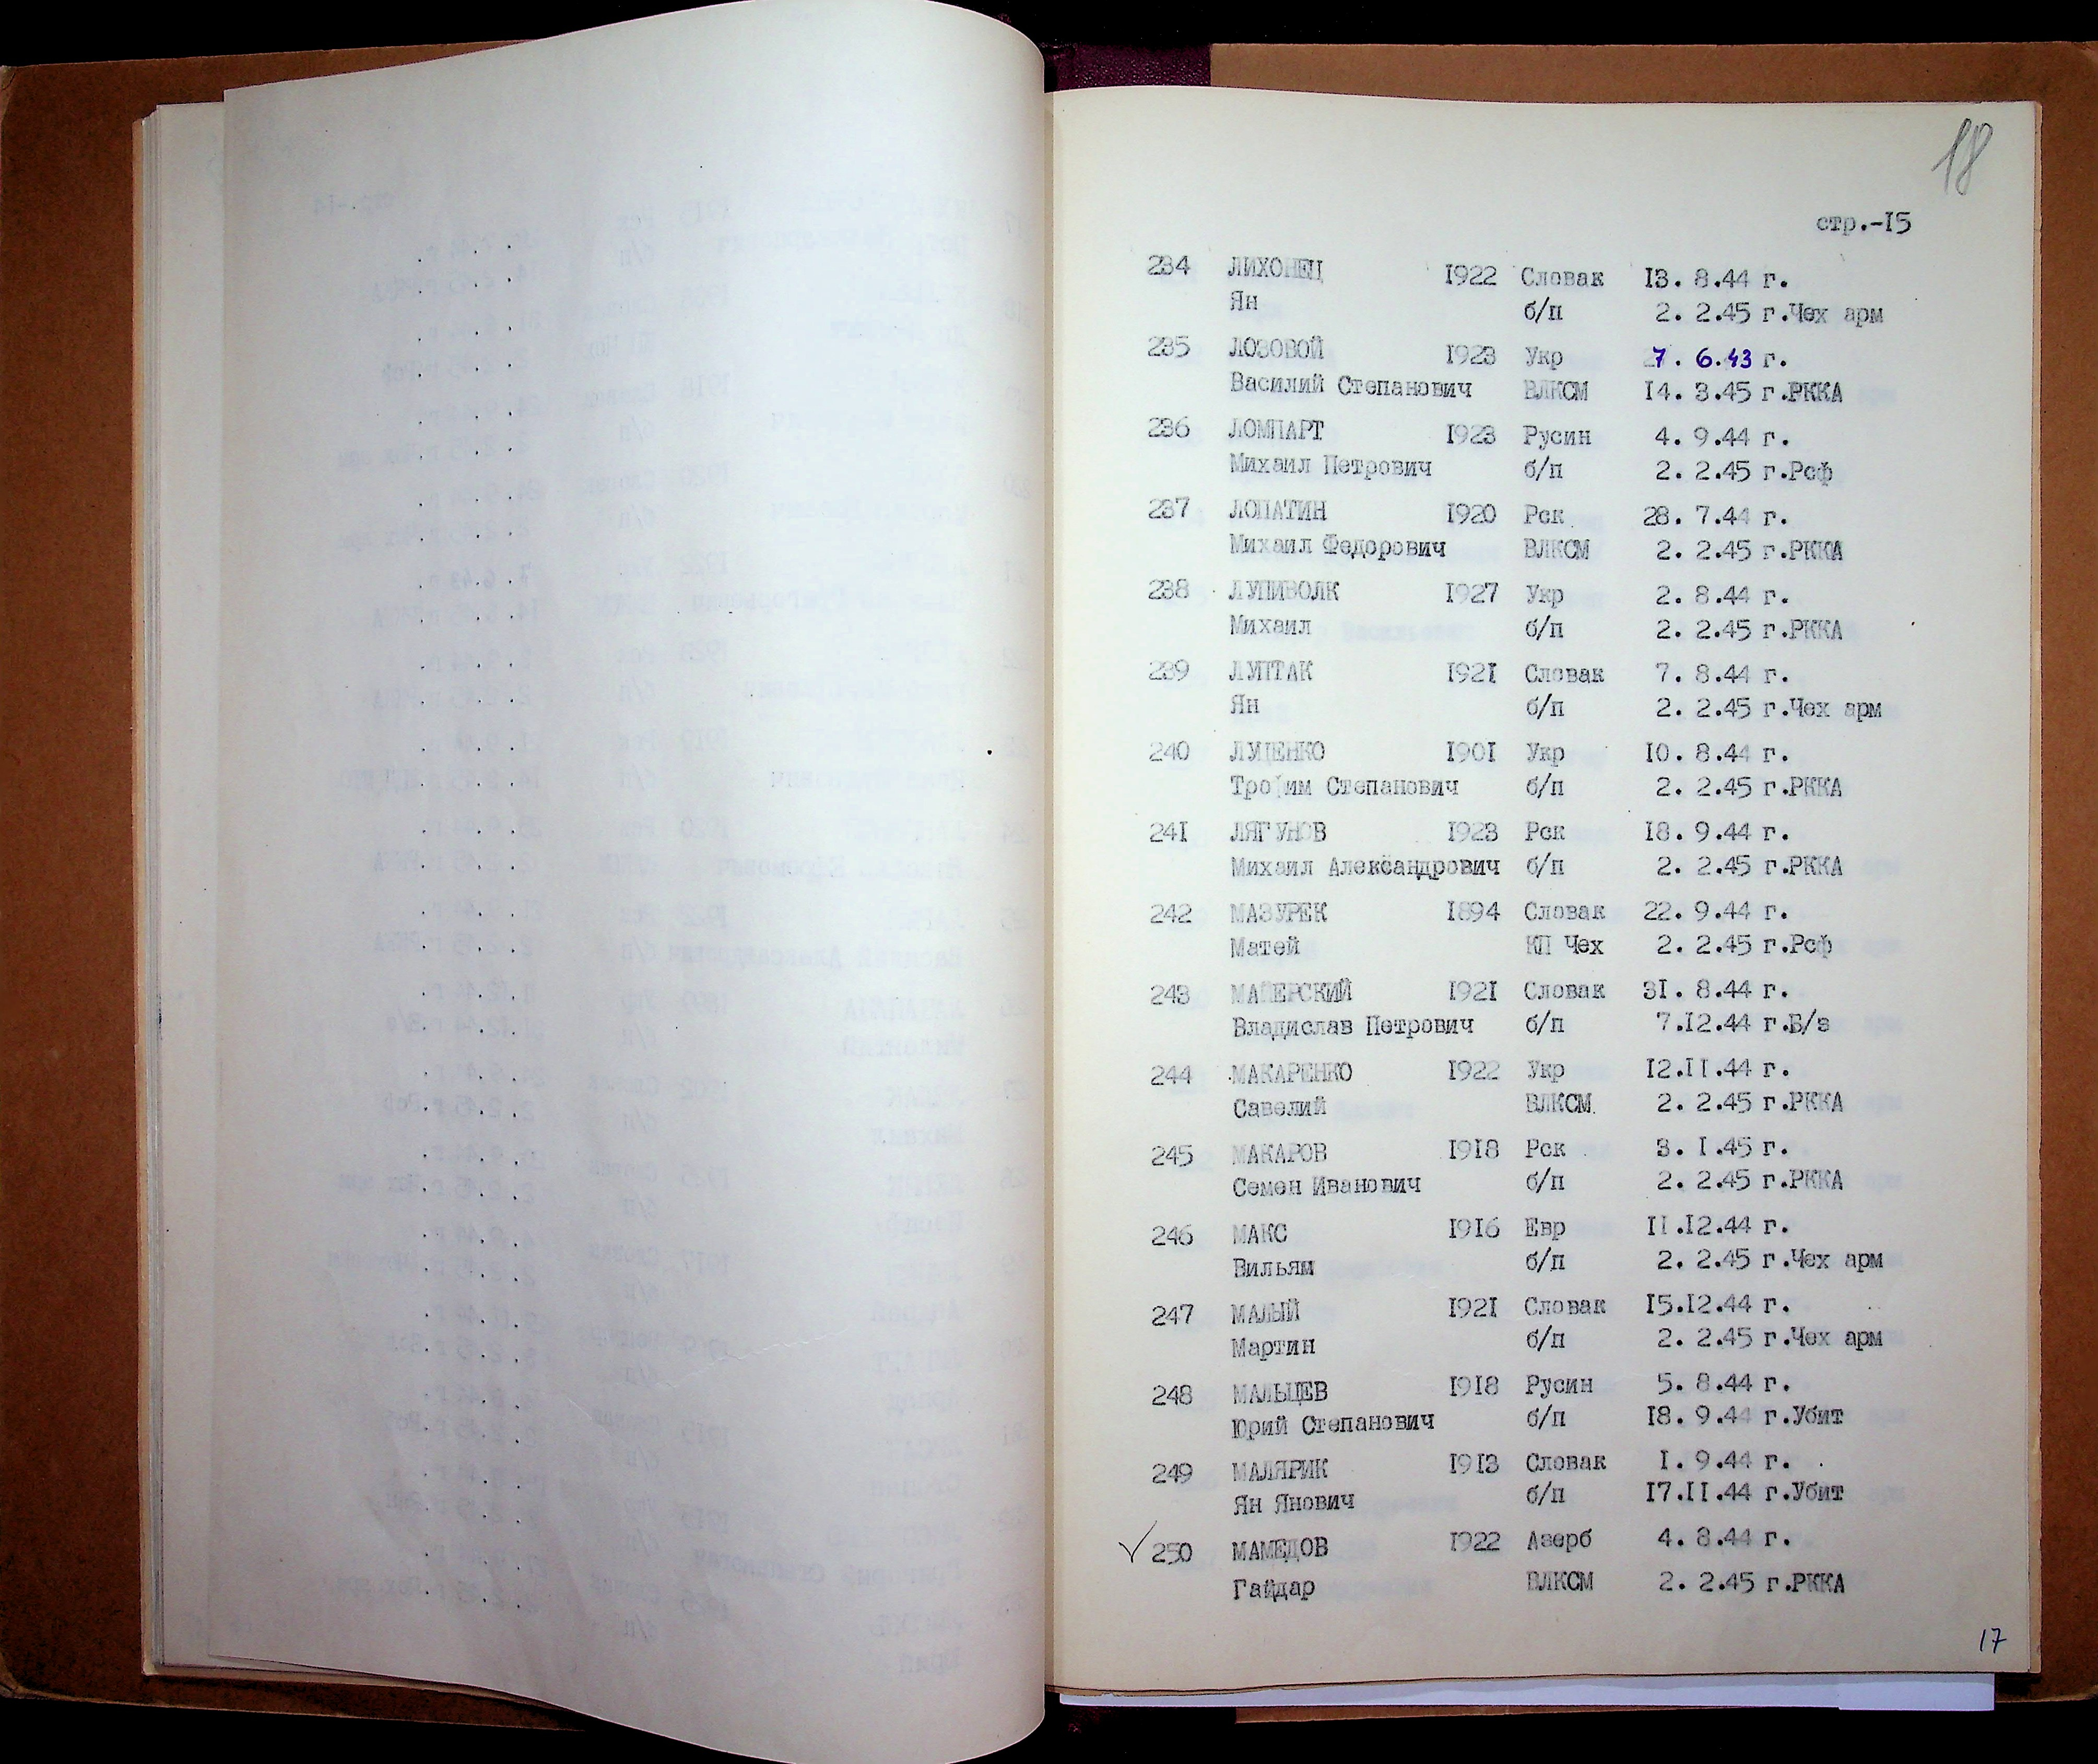 18
стр.-15
234 ЛИХОНЕЦ 1922 Словак 13. 8.44 г.
Ян б/п 2. 2.45 г.Чех арм
235 ЛОЗОВОЙ 1923 Укр 7. 6.43 г.
Василий Степанович ВЛКСМ 14. 3.45 г.РККА
236 ЛОМПАРТ 1923 Русин 4. 9.44 г.
Михаил Петрович б/п 2. 2.45 г.Рсф
237 ЛОПАТИН 1920 Рск 28. 7.44 г.
Михаил Федорович ВЛКСМ 2. 2.45 г.РККА
238 ЛУПИВОЛК 1927 Укр 2. 8.44 г.
Михаил б/п 2. 2.45 г.РККА
239 ЛУПТАК 1921 Словак 7. 8.44 г.
Ян б/п 2. 2.45 г.Чех арм
240 ЛУЦЕНКО 1901 Укр 10. 8.44 г.
Трофим Степанович б/п 2. 2.45 г.РККА
241 ЛЯГУНОВ 1923 Рск 18. 9.44 г.
Михаил Александрович б/п 2. 2.45 г.РККА
242 МАЗУРЕК 1894 Словак 22. 9.44 г.
Матей КП Чех 2. 2.45 г.Рсф
243 МАЙЕРСКИЙ 1921 Словак 31. 8.44 г.
Владислав Петрович б/п 7.12.44 г.Б/з
244 МАКАРЕНКО 1922 Укр 12.11.44 г.
Савелий ВЛКСМ 2. 2.45 г.РККА
245 МАКАРОВ 1918 Рск 3. 1.45 г.
Семен Иванович б/п 2. 2.45 г.РККА
246 МАКС 1916 Евр 11.12.44 г.
Вильям б/п 2. 2.45 г.Чех арм
247 МАЛЫЙ 1921 Словак 15.12.44 г.
Мартин б/п 2. 2.45 г.Чех арм
248 МАЛЬЦЕВ 1918 Русин 5. 8.44 г.
Юрий Степанович б/п 18. 9.44 г.Убит
249 МАЛЯРИК 1913 Словак 1. 9.44 г.
Ян Янович б/п 17.11.44 г.Убит
✓ 250 МАМЕДОВ 1922 Азерб 4. 8.44 г.
Гайдар ВЛКСМ 2. 2.45 г.РККА
17